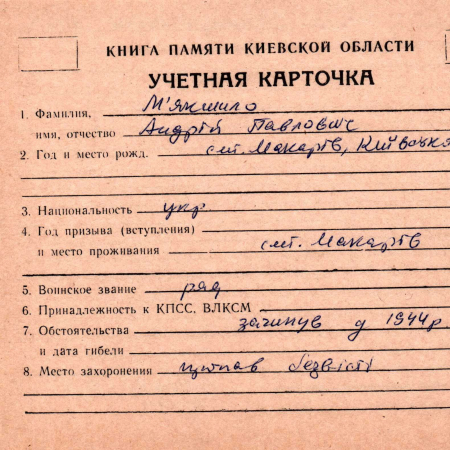 КНИГА ПАМЯТИ КИЕВСКОЙ ОБЛАСТИ
УЧЕТНАЯ КАРТОЧКА
1. Фамилия, М'якшило
имя, отчество Андрій Павлович
2. Год и место рожд. смт. Макарів, Київська
3. Национальность укр
4. Год призыва (вступления)
и место проживания смт. Макарів
5. Воинское звание ряд
6. Принадлежность к КПСС, ВЛКСМ
7. Обстоятельства загинув у 1944р
и дата гибели
8. Место захоронения пропав безвісті